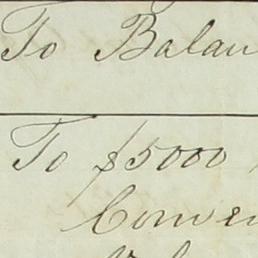 To Balan
To $5000
Conven